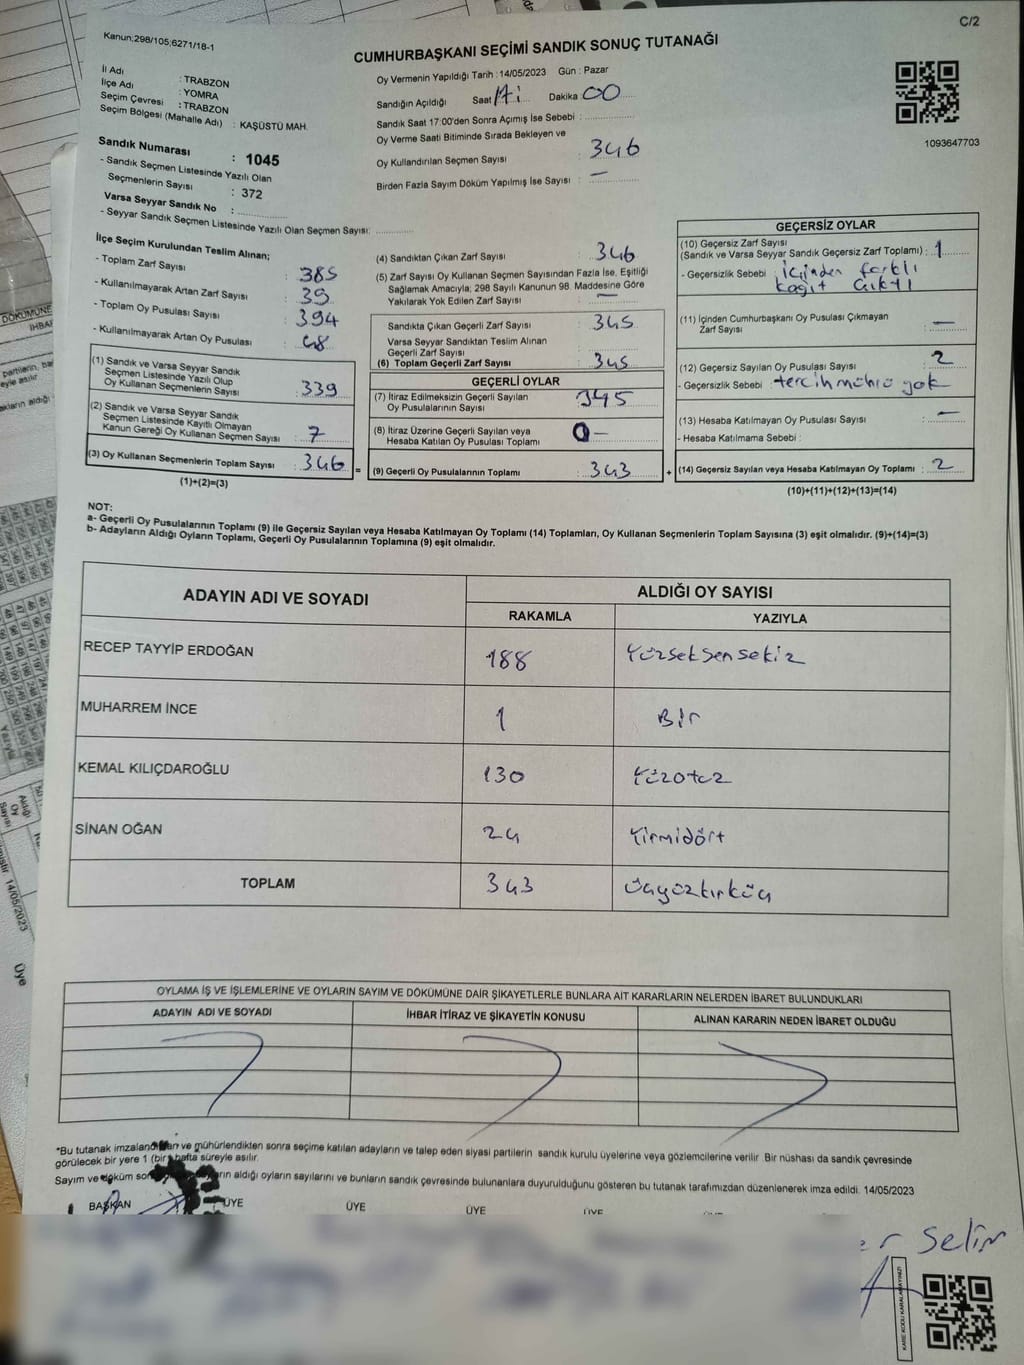 C/2
Kanun;298/105;6271/18-1
CUMHURBAŞKANI SEÇİMİ SANDIK SONUÇ TUTANAĞI
İl Adı : TRABZON
İlçe Adı : YOMRA
Seçim Çevresi : TRABZON
Seçim Bölgesi (Mahalle Adı) : KAŞÜSTÜ MAH.
Sandık Numarası : 1045
- Sandık Seçmen Listesinde Yazılı Olan
Seçmenlerin Sayısı : 372
Varsa Seyyar Sandık No :
- Seyyar Sandık Seçmen Listesinde Yazılı Olan Seçmen Sayısı:
Oy Vermenin Yapıldığı Tarih : 14/05/2023 Gün : Pazar
Sandığın Açıldığı Saat 17: Dakika 00
Sandık Saat 17:00'den Sonra Açımış İse Sebebi :
Oy Verme Saati Bitiminde Sırada Bekleyen ve
Oy Kullandırılan Seçmen Sayısı : 346
Birden Fazla Sayım Döküm Yapılmış İse Sayısı : —
1093647703
İlçe Seçim Kurulundan Teslim Alınan;
- Toplam Zarf Sayısı : 385
- Kullanılmayarak Artan Zarf Sayısı : 39
- Toplam Oy Pusulası Sayısı : 394
- Kullanılmayarak Artan Oy Pusulası : 48
(1) Sandık ve Varsa Seyyar Sandık
Seçmen Listesinde Yazılı Olup
Oy Kullanan Seçmenlerin Sayısı : 339
(2) Sandık ve Varsa Seyyar Sandık
Seçmen Listesinde Kayıtlı Olmayan
Kanun Gereği Oy Kullanan Seçmen Sayısı : 7
(3) Oy Kullanan Seçmenlerin Toplam Sayısı : 346
(1)+(2)=(3)
(4) Sandıktan Çıkan Zarf Sayısı : 346
(5) Zarf Sayısı Oy Kullanan Seçmen Sayısından Fazla İse, Eşitliği
Sağlamak Amacıyla; 298 Sayılı Kanunun 98. Maddesine Göre
Yakılarak Yok Edilen Zarf Sayısı : —
Sandıkta Çıkan Geçerli Zarf Sayısı : 345
Varsa Seyyar Sandıktan Teslim Alınan
Geçerli Zarf Sayısı
(6) Toplam Geçerli Zarf Sayısı : 345
GEÇERLİ OYLAR
(7) İtiraz Edilmeksizin Geçerli Sayılan
Oy Pusulalarının Sayısı : 345
(8) İtiraz Üzerine Geçerli Sayılan veya
Hesaba Katılan Oy Pusulası Toplamı : 0 —
= (9) Geçerli Oy Pusulalarının Toplamı : 343 +
GEÇERSİZ OYLAR
(10) Geçersiz Zarf Sayısı
(Sandık ve Varsa Seyyar Sandık Geçersiz Zarf Toplamı) : 1
- Geçersizlik Sebebi : içinden farklı
kağıt çıktı
(11) İçinden Cumhurbaşkanı Oy Pusulası Çıkmayan
Zarf Sayısı : —
(12) Geçersiz Sayılan Oy Pusulası Sayısı : 2
- Geçersizlik Sebebi : tercih mührü yok
(13) Hesaba Katılmayan Oy Pusulası Sayısı : —
- Hesaba Katılmama Sebebi :
(14) Geçersiz Sayılan veya Hesaba Katılmayan Oy Toplamı : 2
(10)+(11)+(12)+(13)=(14)
NOT:
a- Geçerli Oy Pusulalarının Toplamı (9) ile Geçersiz Sayılan veya Hesaba Katılmayan Oy Toplamı (14) Toplamları, Oy Kullanan Seçmenlerin Toplam Sayısına (3) eşit olmalıdır. (9)+(14)=(3)
b- Adayların Aldığı Oyların Toplamı, Geçerli Oy Pusulalarının Toplamına (9) eşit olmalıdır.
ADAYIN ADI VE SOYADI ALDIĞI OY SAYISI
RAKAMLA YAZIYLA
RECEP TAYYİP ERDOĞAN 188 Yüzseksensekiz
MUHARREM İNCE 1 Bir
KEMAL KILIÇDAROĞLU 130 Yüzotuz
SİNAN OĞAN 24 Yirmidört
TOPLAM 343 üçyüzkırküç
OYLAMA İŞ VE İŞLEMLERİNE VE OYLARIN SAYIM VE DÖKÜMÜNE DAİR ŞİKAYETLERLE BUNLARA AİT KARARLARIN NELERDEN İBARET BULUNDUKLARI
ADAYIN ADI VE SOYADI İHBAR İTİRAZ VE ŞİKAYETİN KONUSU ALINAN KARARIN NEDEN İBARET OLDUĞU
*Bu tutanak ve mühürlendikten sonra seçime katılan adayların ve talep eden siyasi partilerin sandık kurulu üyelerine veya gözlemcilerine verilir. Bir nüshası da sandık çevresinde
görülecek bir yere 1 (bir) hafta süreyle asılır.
Sayım ve döküm aldığı oyların sayılarını ve bunların sandık çevresinde bulunanlara duyurulduğunu gösteren bu tutanak tarafımızdan düzenlenerek imza edildi. 14/05/2023
BAŞKAN ÜYE ÜYE ÜYE ÜYE
Selim
KARE KODU KARALAMAYINIZ!